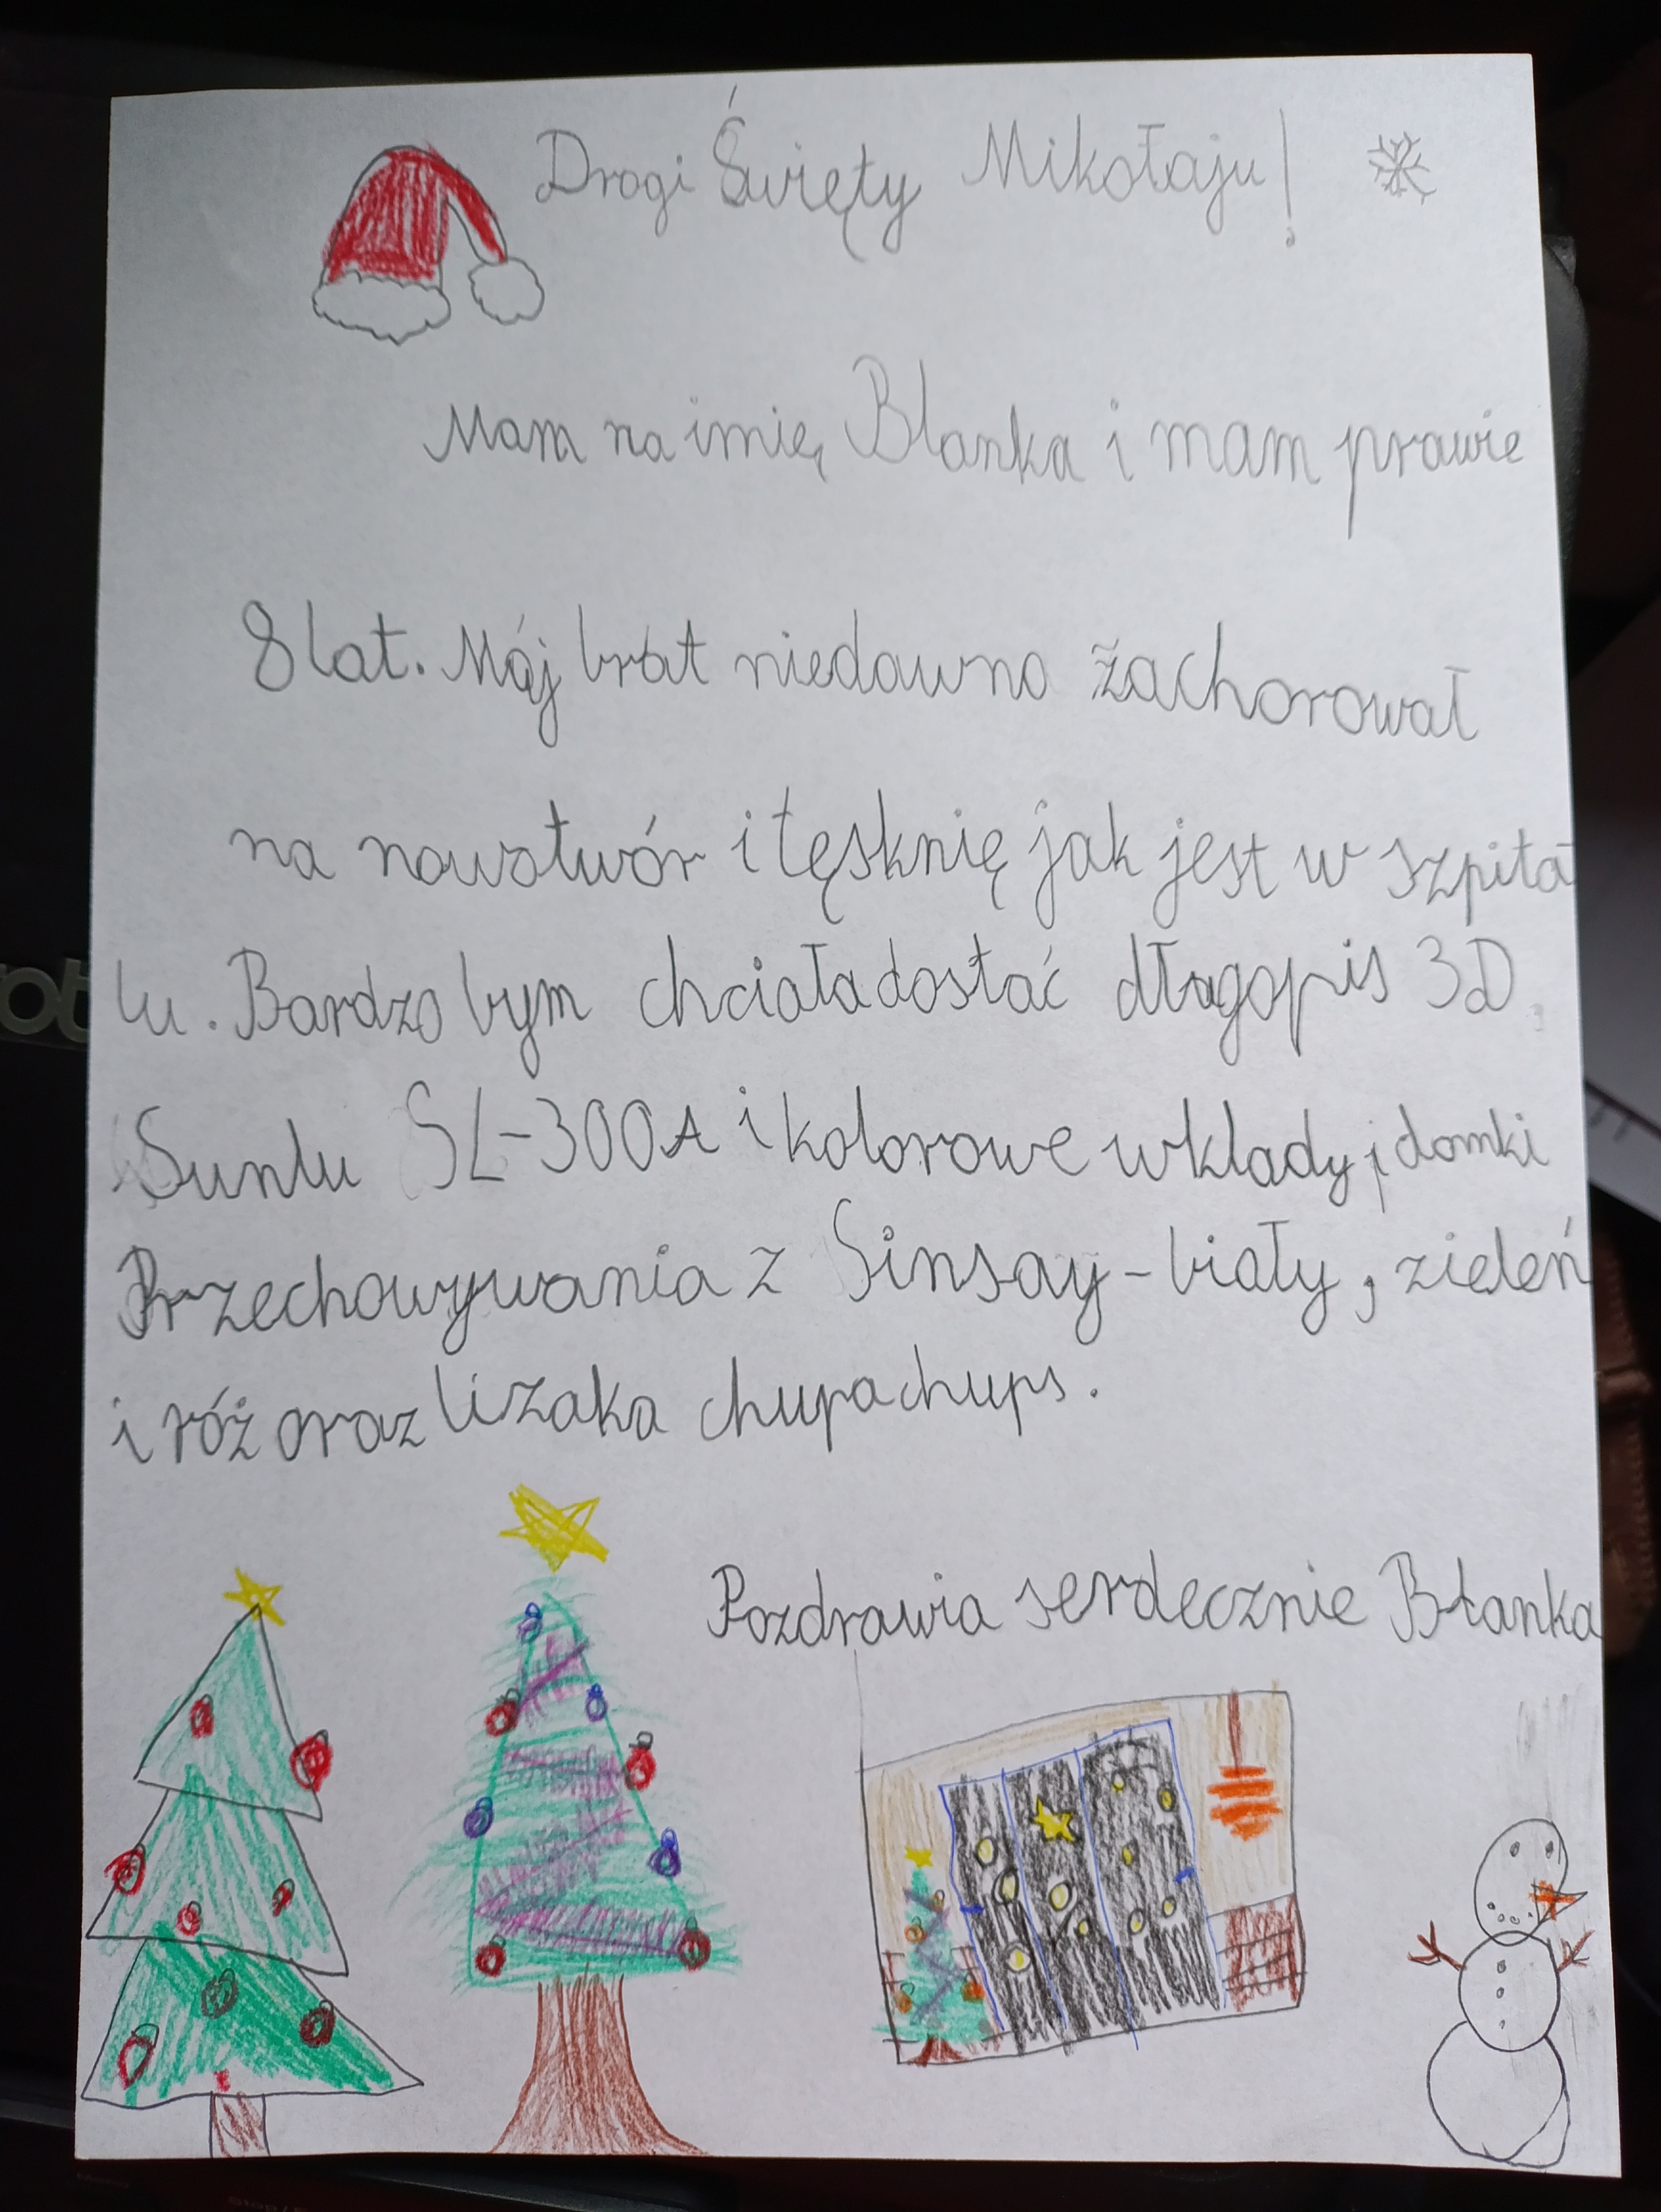 Drogi Święty Mikołaju!
Mam na imię Blanka i mam prawie
8 lat. Mój brat niedawno zachorował
na nowotwór i tęsknię jak jest w szpita
lu. Bardzo bym chciała dostać długopis 3D
Sunlu SL-300A i kolorowe wklady, domki
Przechowywania z Sinsay - biały, zieleń
i róż oraz lizaka chupachups.
Pozdrawia serdecznie Blanka